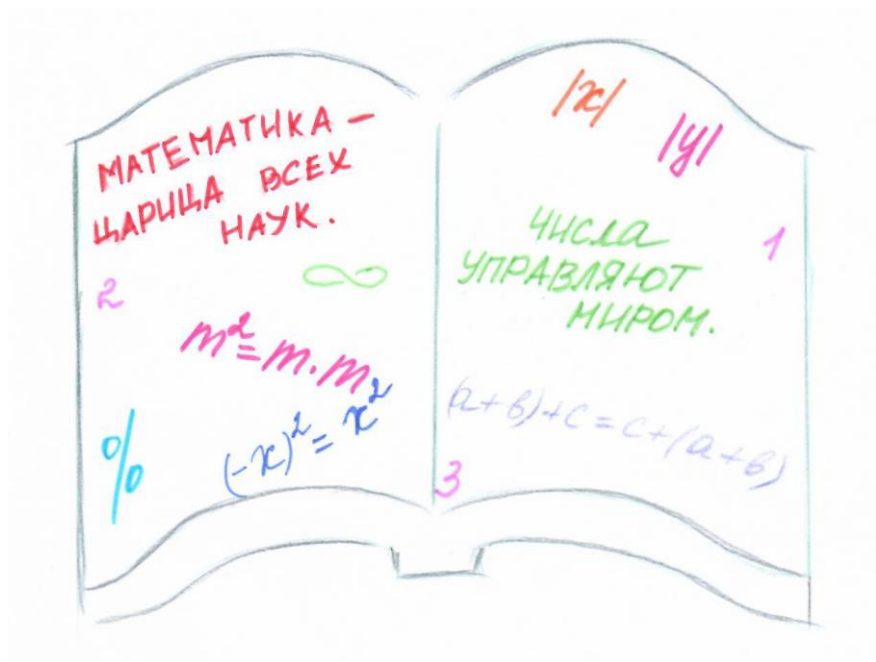 МАТЕМАТИКА –
ЦАРИЦА ВСЕХ
НАУК.
2
∞
m²=m·m
%
(-x)²=x²
|x|
|y|
ЧИСЛА
УПРАВЛЯЮТ
МИРОМ.
1
(a+в)+c=c+(a+в)
3